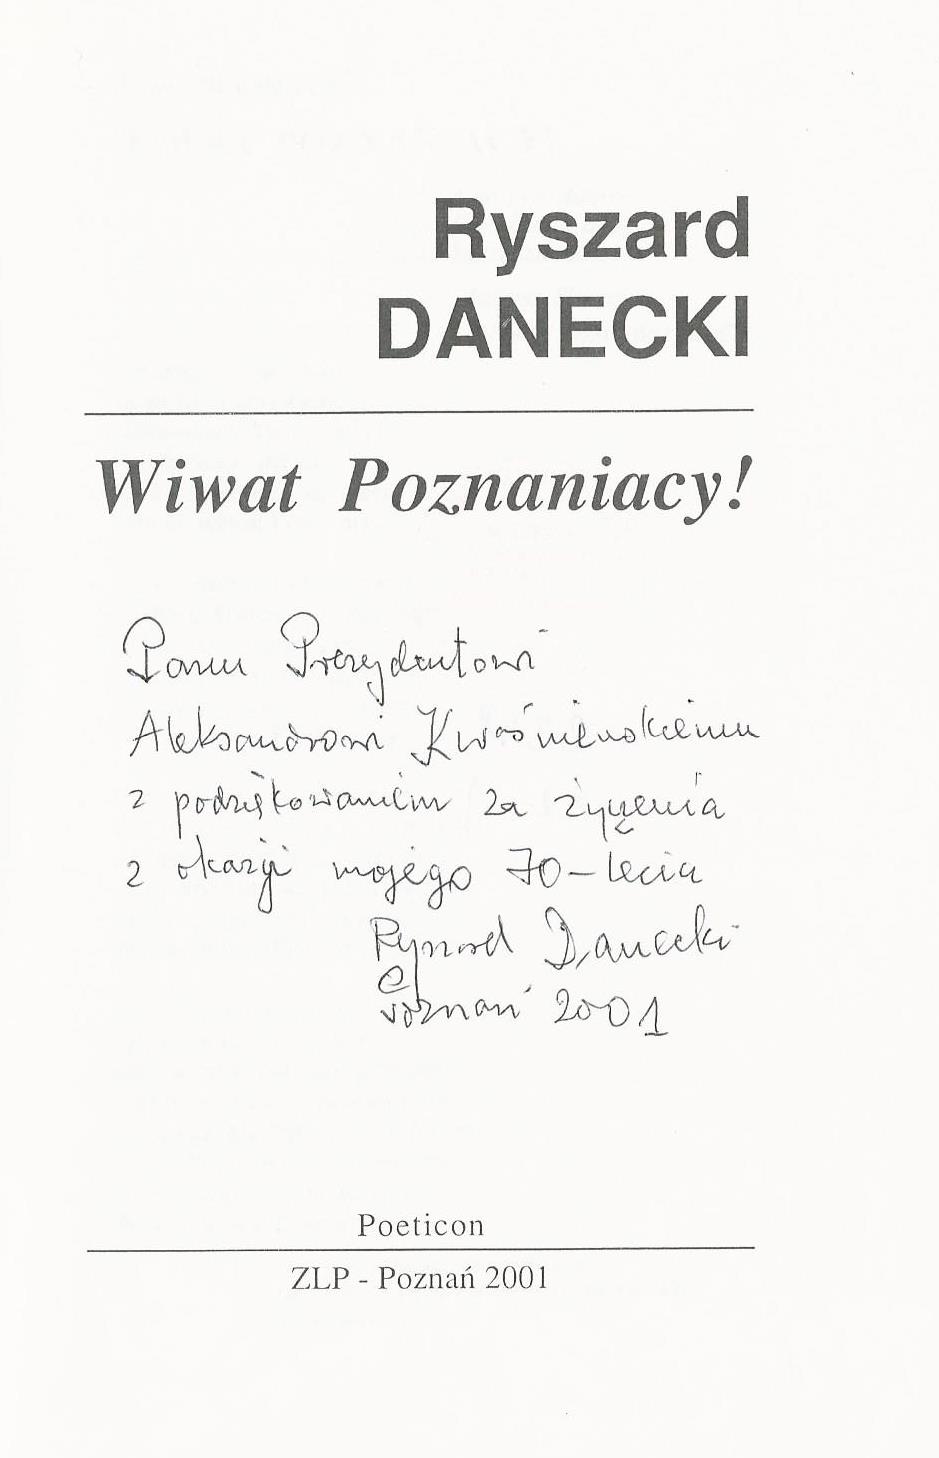 Ryszard
DANECKI
Wiwat Poznaniacy!
Panu Prezydentowi
Aleksandrowi Kwaśniewskiemu
z podziękowaniem za życzenia
z okazji mojego 70-lecia
Ryszard Danecki
Poznań 2001
Poeticon
ZLP - Poznań 2001